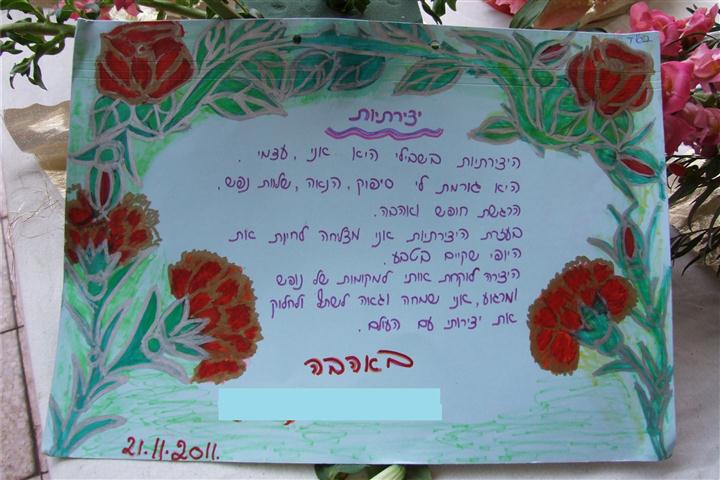 בס"ד
יצירתיות
היצירתיות בשבילי היא אני, עצמי.
היא גורמת לי סיפוק, הנאה, שלוות נפש,
הרגשת חופש ואהבה.
בעזרת היצירתיות אני מצליחה לחיות את
היופי שקיים בטבע.
היצירה לוקחת אותי למקומות של נופש
ומרגוע, אני שמחה וגאה לשתף ולחלוק
את יצירותי עם העולם.
באהבה
21.11.2011.